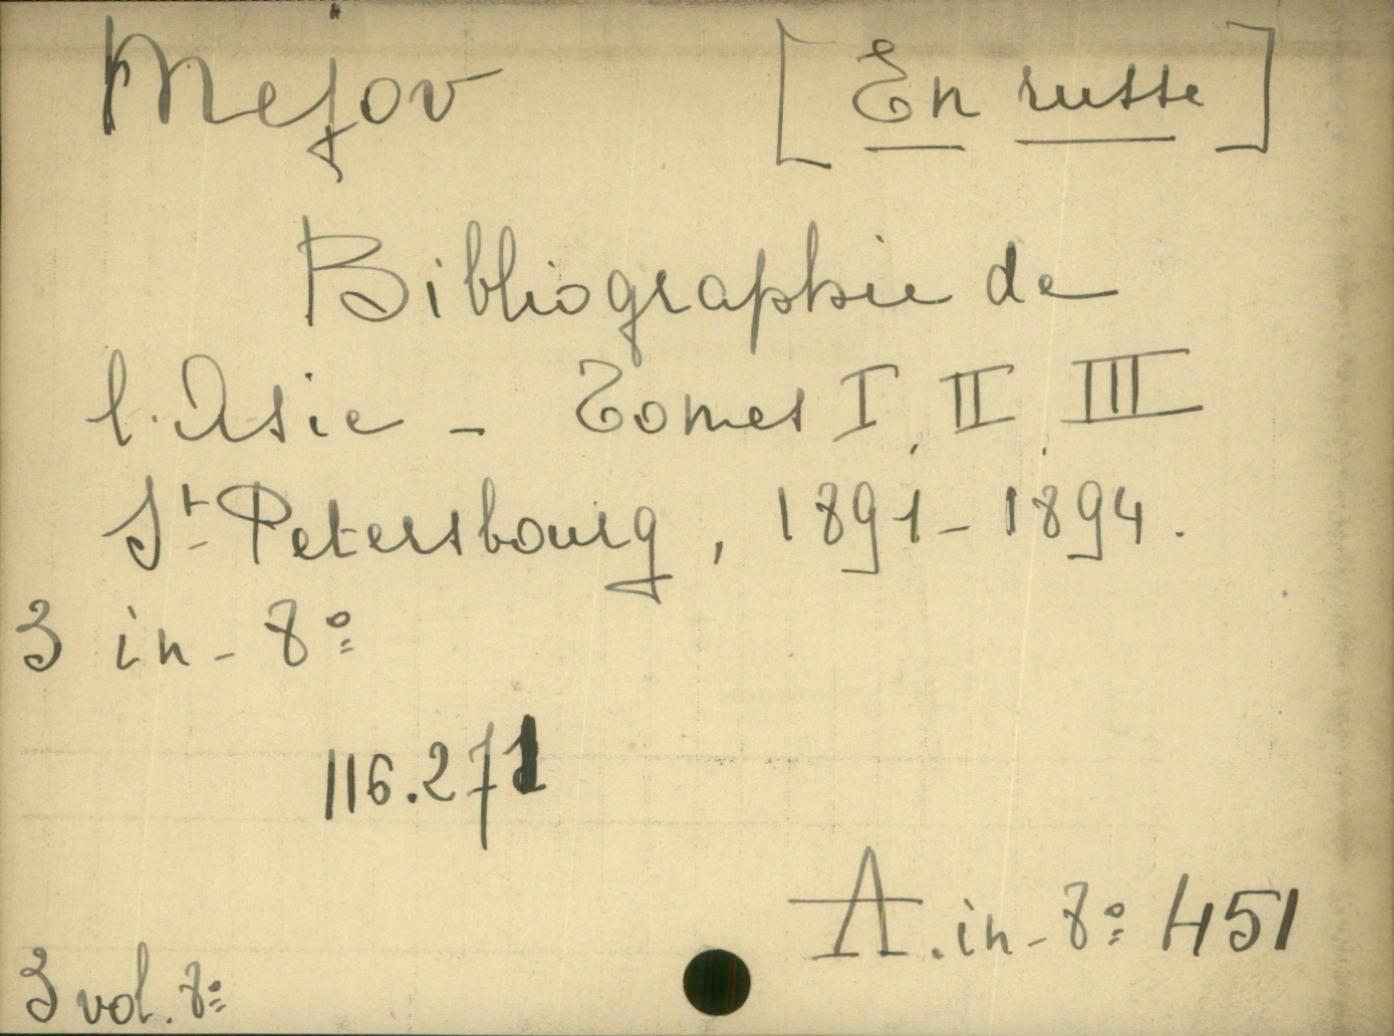 Mejov [En russe]
Bibliographie de
l'Asie - Tomes I, II, III
St Petersbourg, 1891-1894.
3 in-8º
116.271
A. in-8º 451
3 vol. 8º